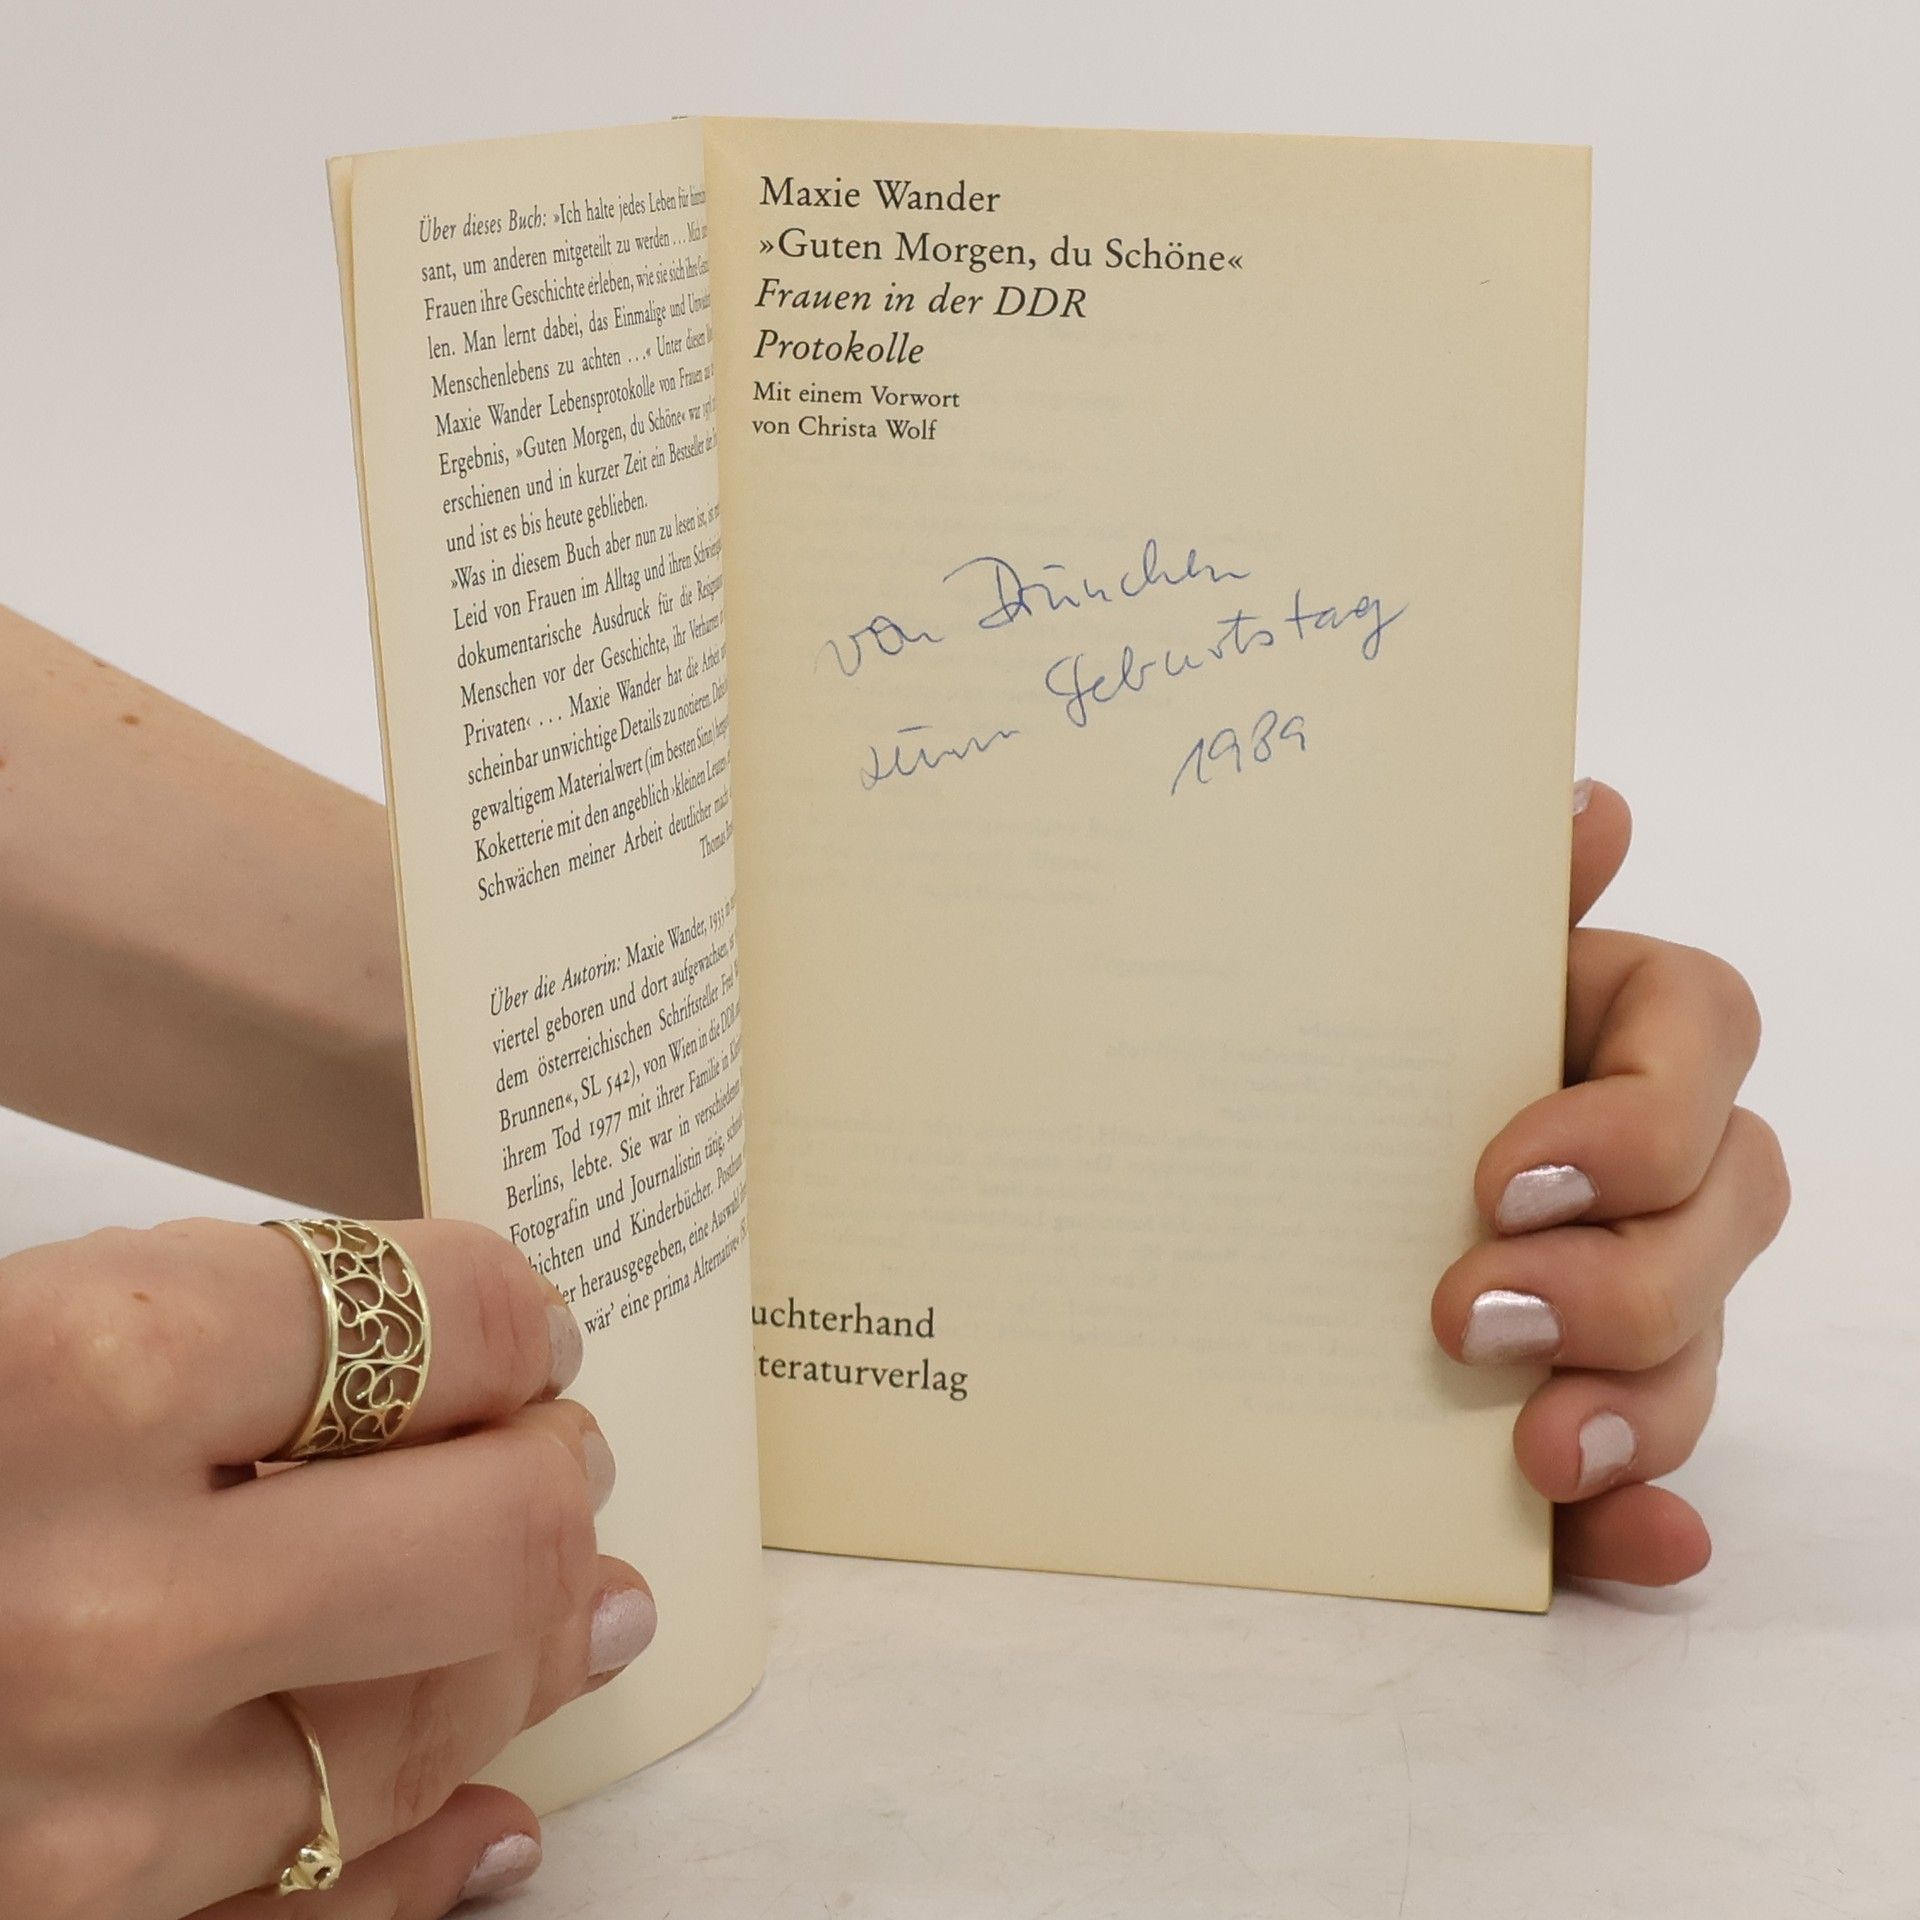 Über dieses Buch: »Ich halte jedes Leben für
sant, um anderen mitgeteilt zu werden ... Mich
Frauen ihre Geschichte erleben, wie sie sich ihre
len. Man lernt dabei, das Einmalige und
Menschenlebens zu achten ...« Unter diesem
Maxie Wander Lebensprotokolle von Frauen
Ergebnis, »Guten Morgen, du Schöne« war 1978
erschienen und in kurzer Zeit ein Bestseller der
und ist es bis heute geblieben.
»Was in diesem Buch aber nun zu lesen ist, ist
Leid von Frauen im Alltag und ihren
dokumentarische Ausdruck für die
Menschen vor der Geschichte, ihr Verharren
Privaten‹ ... Maxie Wander hat die Arbeit
scheinbar unwichtige Details zu notieren.
gewaltigem Materialwert (im besten Sinn)
Koketterie mit den angeblich ›kleinen Leuten‹
Schwächen meiner Arbeit deutlicher macht
Thomas
Über die Autorin: Maxie Wander, 1933 in
viertel geboren und dort aufgewachsen, ist
dem österreichischen Schriftsteller Fred
Brunnen«, SL 542), von Wien in die DDR
ihrem Tod 1977 mit ihrer Familie in
Berlins, lebte. Sie war in verschiedenen
Fotografin und Journalistin tätig,
hichten und Kinderbücher. Posthum
er herausgegeben, eine Auswahl
wär' eine prima Alternative«
Maxie Wander
»Guten Morgen, du Schöne«
Frauen in der DDR
Protokolle
Mit einem Vorwort
von Christa Wolf
von
zum Geburtstag
1989
uchterhand
iteraturverlag